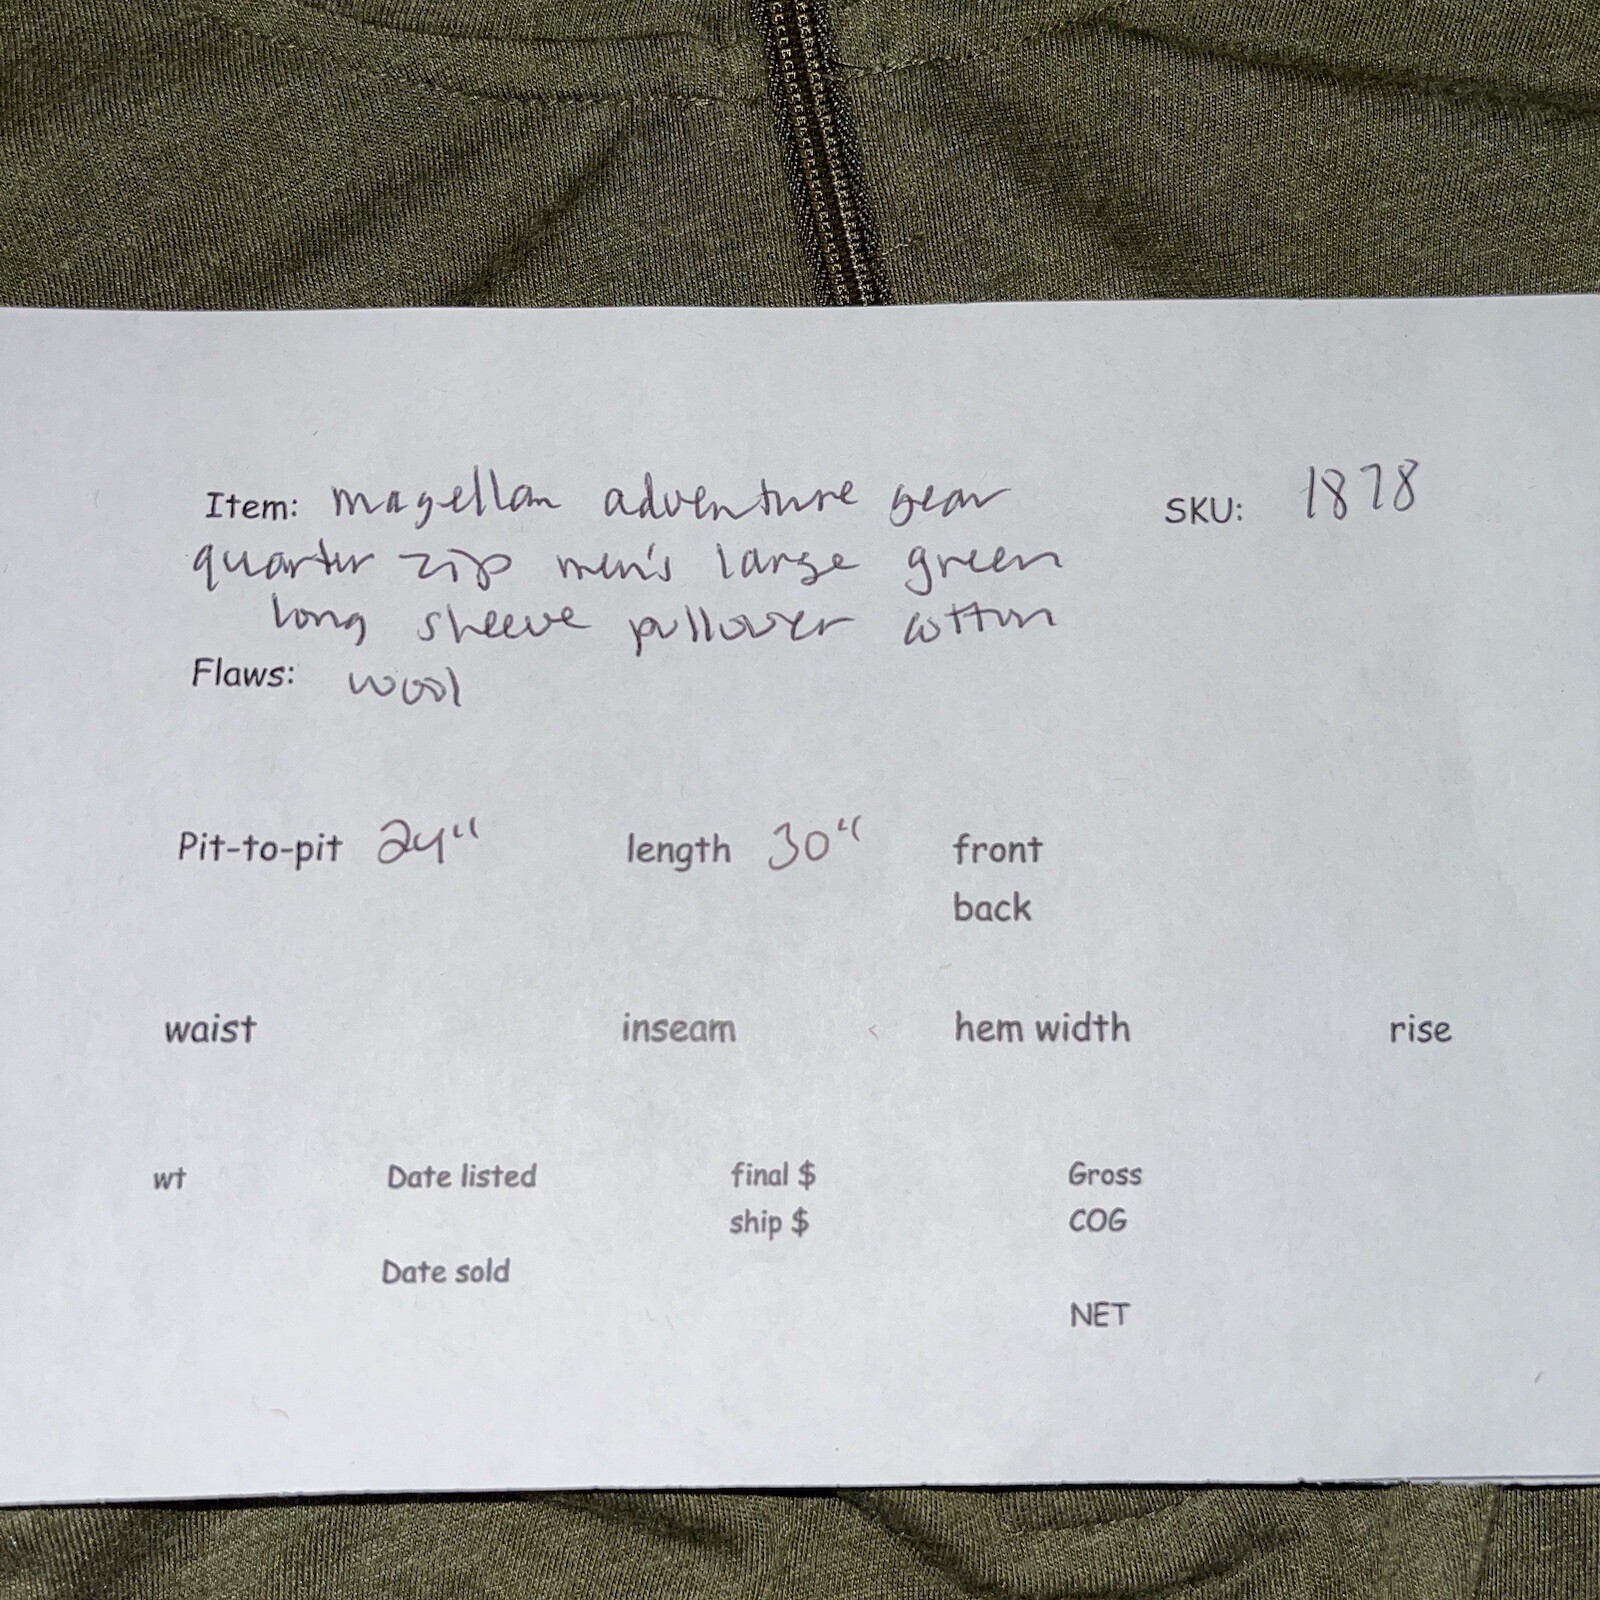 Item: magellan adventure gear SKU: 1878
quarter zip men's large green
long sleeve pullover cotton
Flaws: wool
Pit-to-pit 24" length 30" front
back
waist inseam hem width rise
wt Date listed final $ Gross
ship $ COG
Date sold
NET